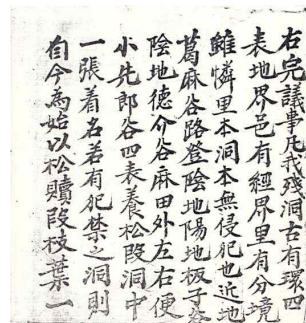 右完議事凡我殘洞古有踏四
表地界邑有經界里有分境
雖憐里本洞本無侵犯也近地
葛麻谷路登陰地陽地板子發
陰地德介谷麻田外左右便
小先郎谷四表養松段洞中
一張着名若有犯禁之洞則
自今為始以松贖段枝葉一